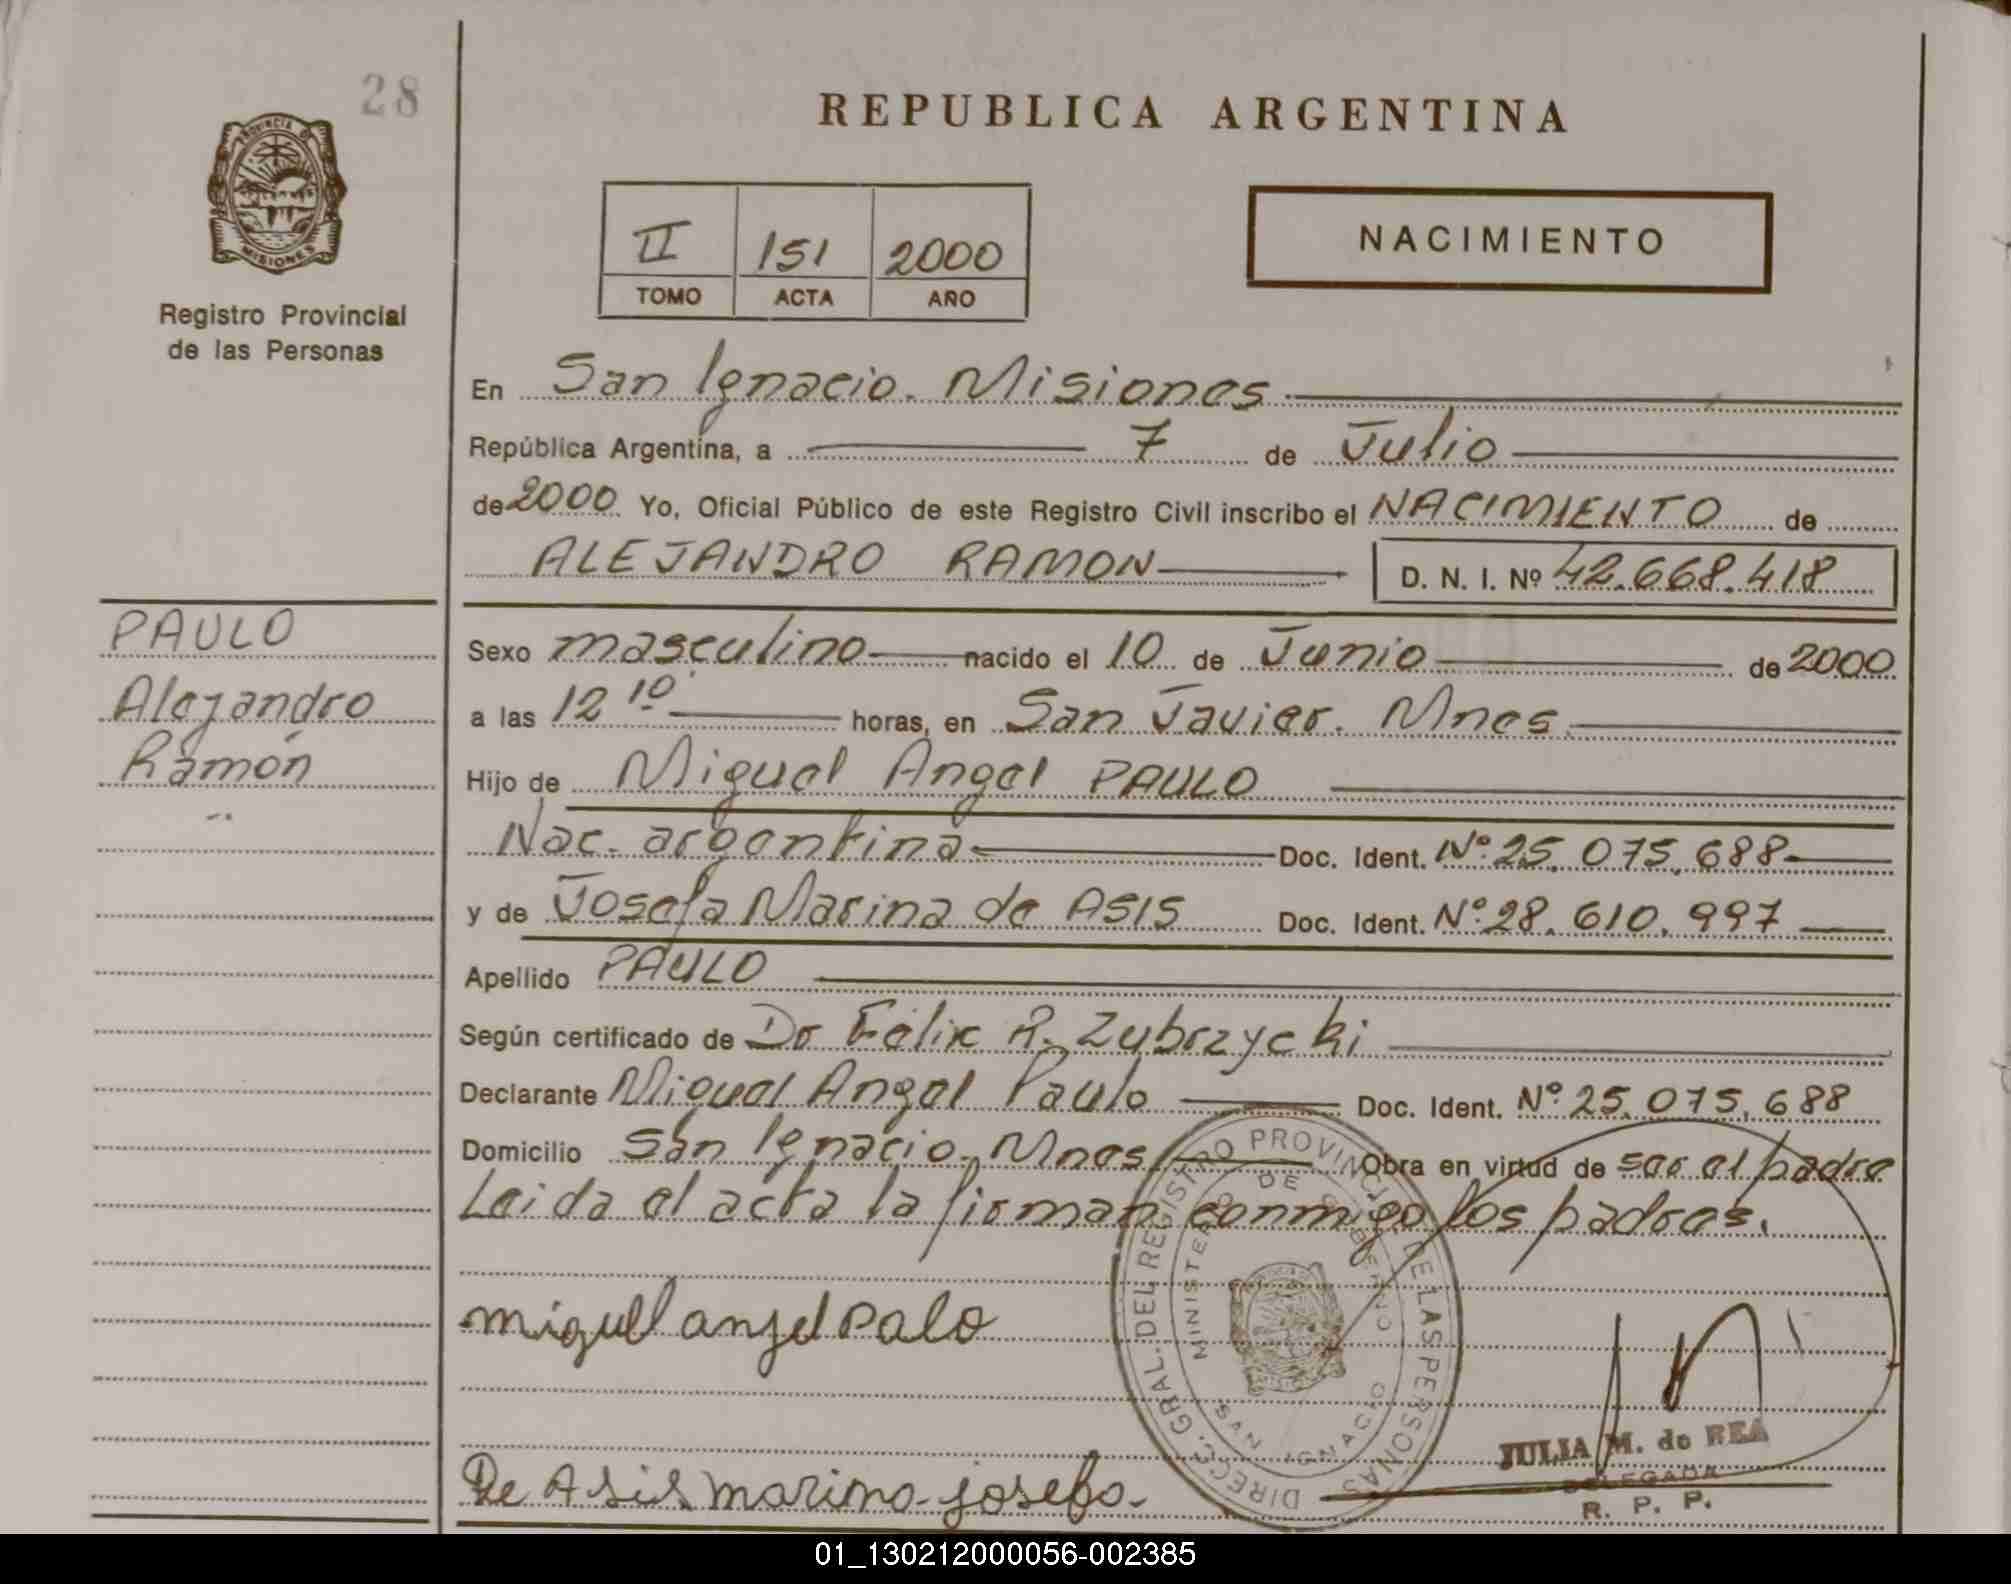 28
REPUBLICA ARGENTINA
PROVINCIA DE MISIONES
Registro Provincial
de las Personas
II 151 2000
TOMO ACTA AÑO
NACIMIENTO
En San Ignacio. Misiones
República Argentina, a 7 de Julio
de 2000 Yo, Oficial Público de este Registro Civil inscribo el NACIMIENTO de
ALEJANDRO RAMON D. N. I. Nº 42.668.418
PAULO
Alejandro
Ramón
Sexo masculino nacido el 10 de Junio de 2000
a las 12 10 horas, en San Javier. Mnes.
Hijo de Miguel Angel PAULO
Nac. argentina Doc. Ident. Nº 25.075.688
y de Josefa Marina de ASIS Doc. Ident. Nº 28.610.997
Apellido PAULO
Según certificado de Dr Félix R. Zybrzycki
Declarante Miguel Angel Paulo Doc. Ident. Nº 25.075.688
Domicilio San Ignacio. Mnes Obra en virtud de ser el padre
Leida el acta la firman conmigo los padres.
miguel anjel Palo
De Asis marina josefa
DIRECC. GRAL. DEL REGISTRO PROVINCIAL DE LAS PERSONAS
MINISTERIO DE GOBIERNO
SAN IGNACIO
JULIA M. de REA
DELEGADA
R. P. P.
01_130212000056-002385